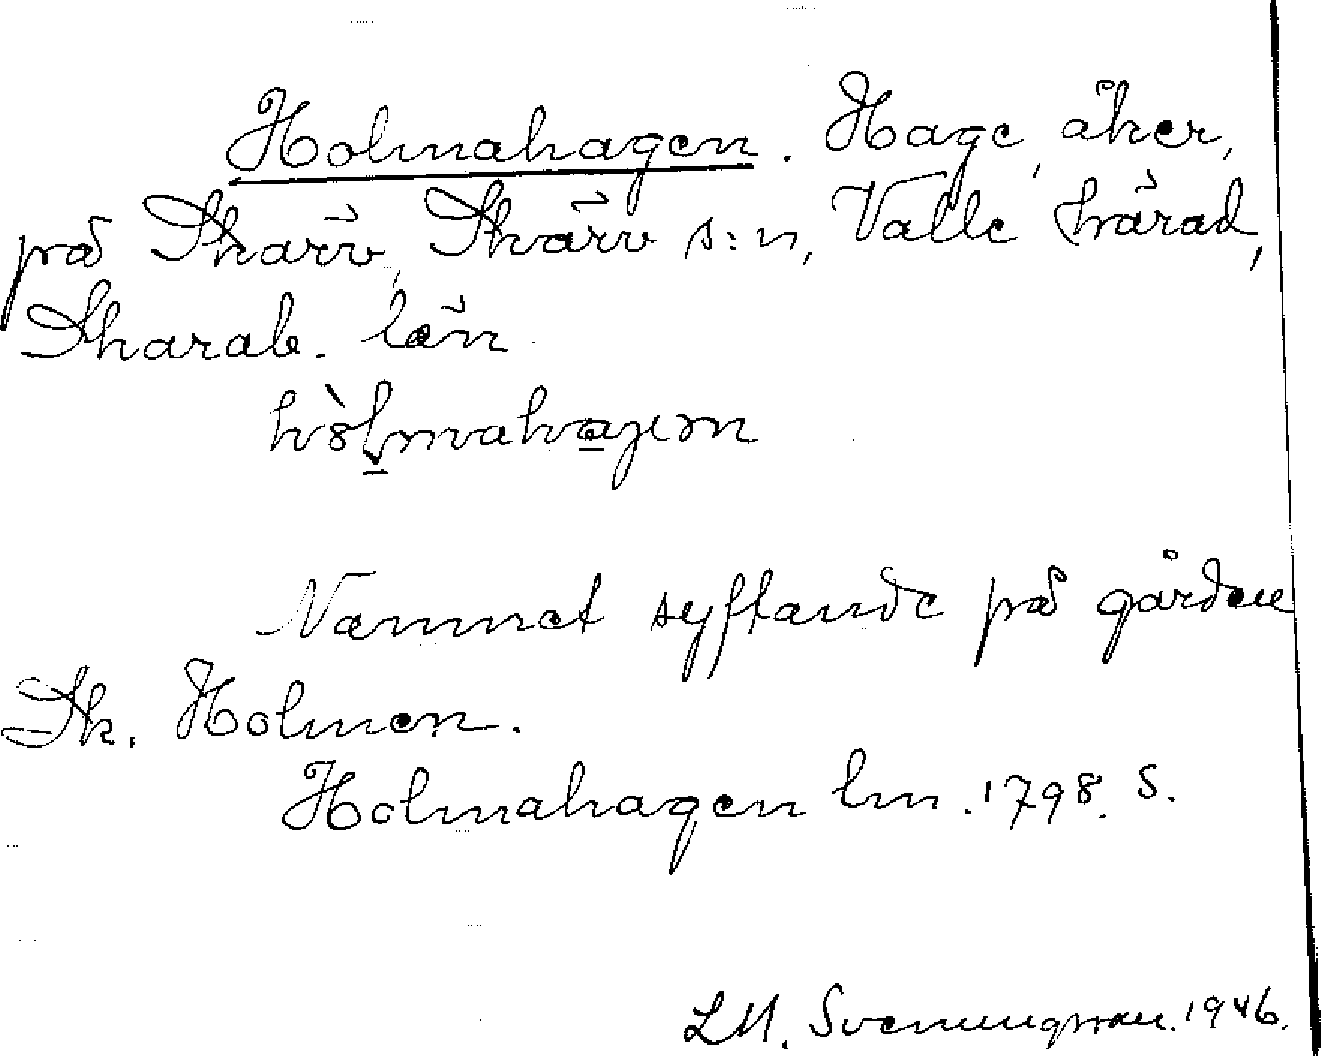 Holmahagen. Hage, åker,
på Skärv, Skärv s:n, Valle härad,
Skarab. län
Namnet syftande på gården
Sk. Holmen.
Holmahagen lm. 1798. S.
LM. Svenungsson. 1946.